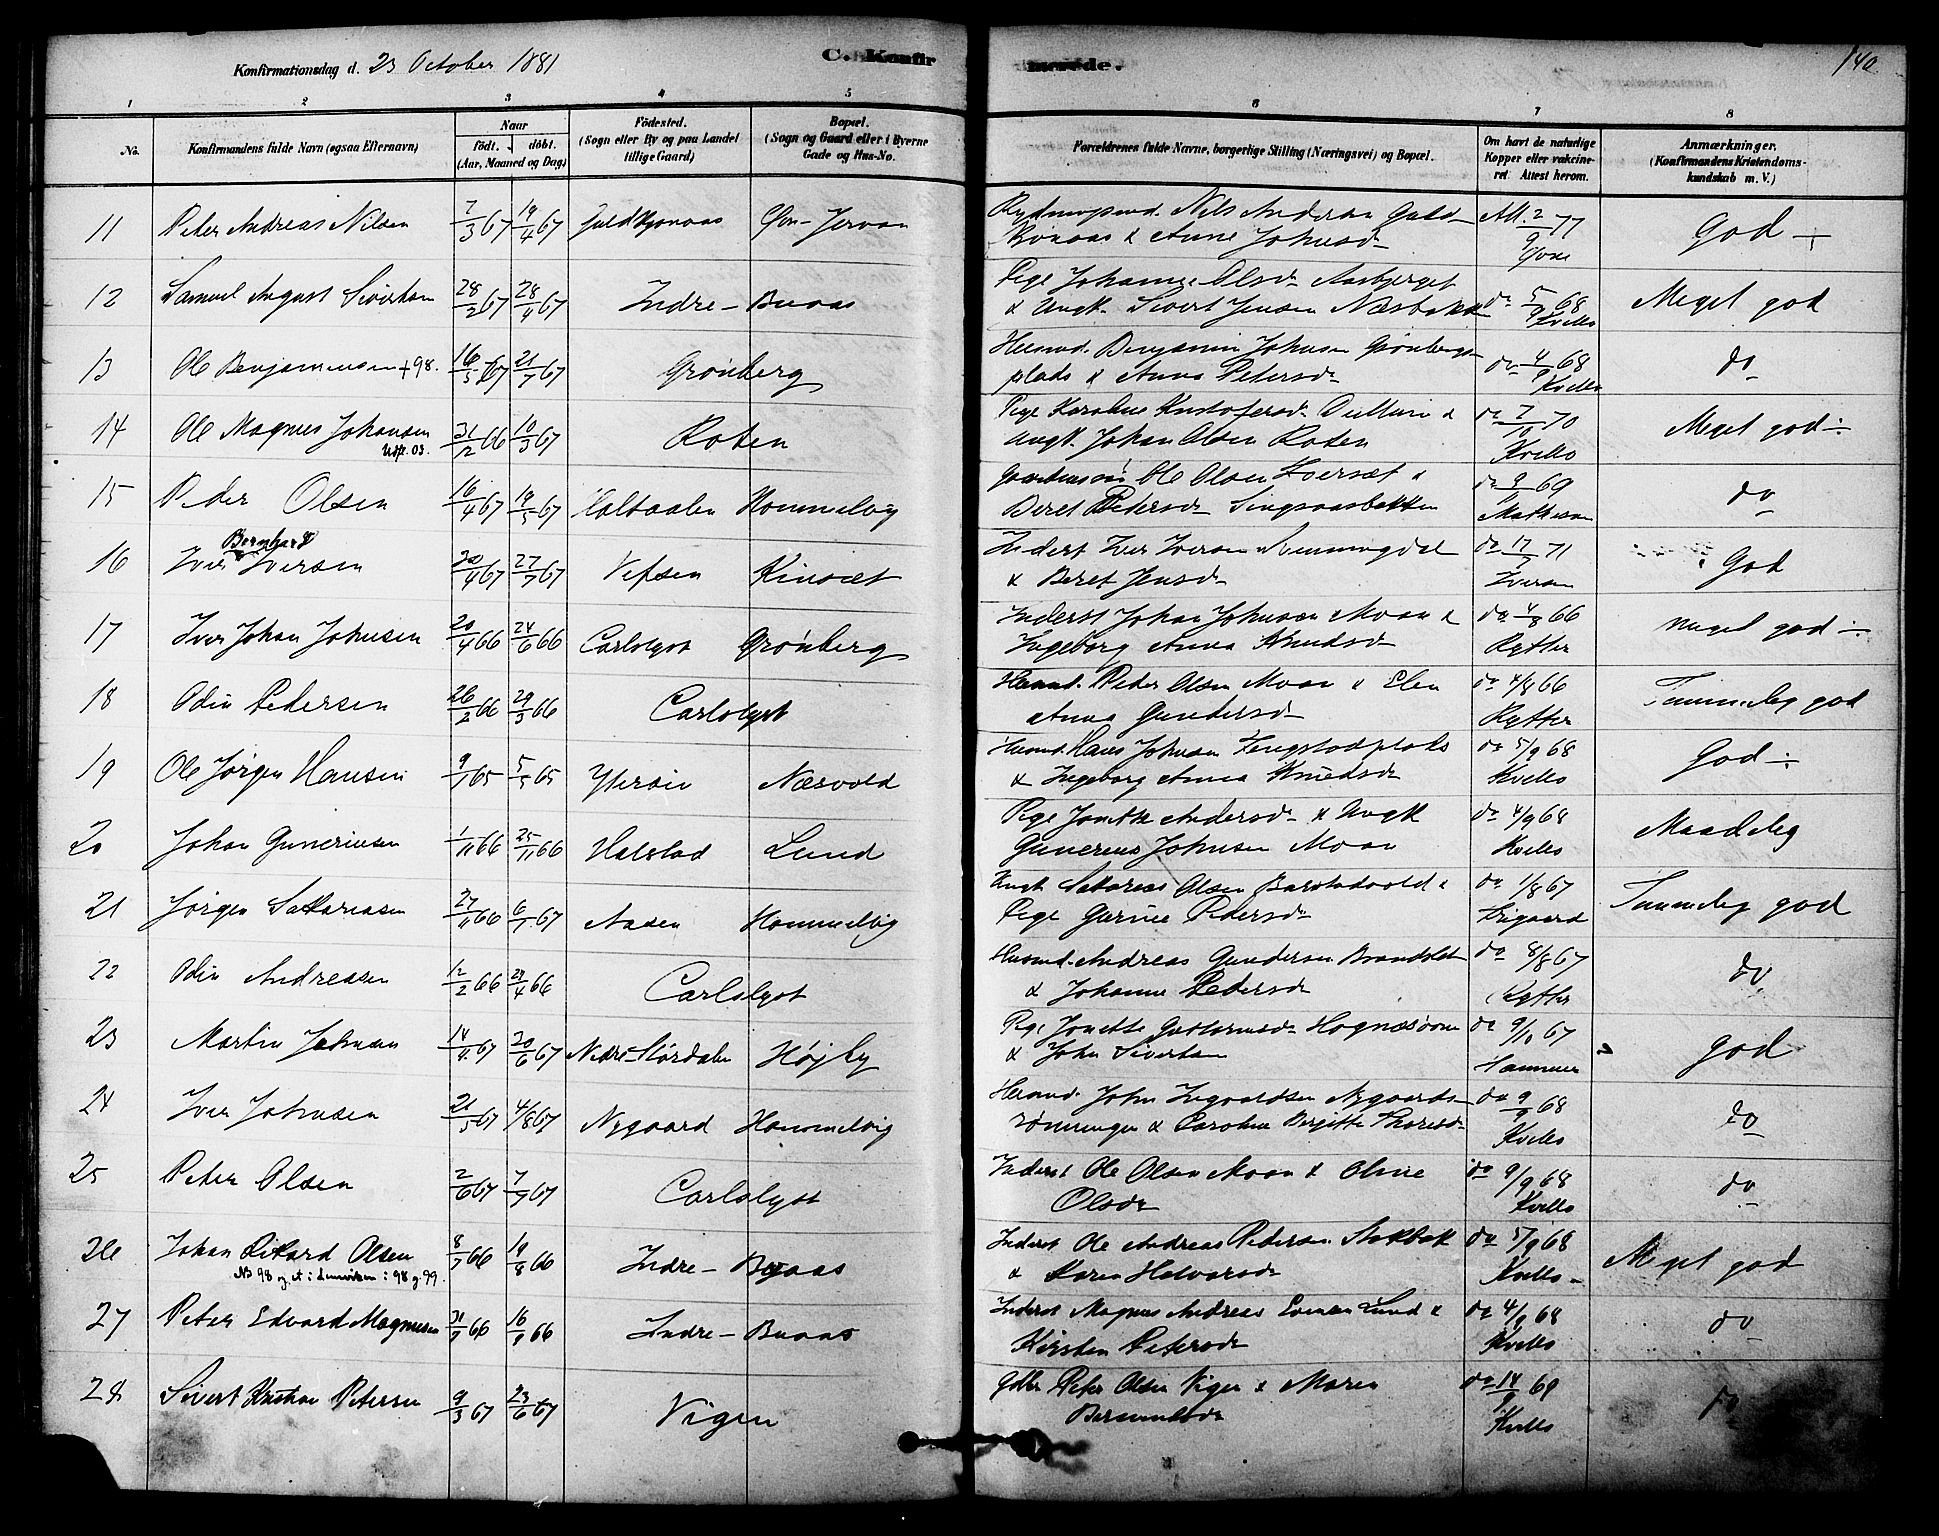 Konfirmationsdag d. 23 October 1881
C. Konfirmerede.
140
1 2 3 4 5 6 7 8
No.
Konfirmandens fulde Navn (ogsaa Efternavn)
Naar
födt. döbt.
(Aar, Maaned og Dag)
Födested.
(Sogn eller By og paa Landet
tillige Gaard)
Bopæl.
(Sogn og Gaard eller i Byerne
Gade og Hus-No.
Forældrenes fulde Navne, borgerlige Stilling (Næringsvei) og Bopæl.
Om havt de naturlige
Kopper eller vakcine-
ret. Attest herom.
Anmærkninger.
(Konfirmandens Kristendoms-
kundskab m. V.)
11 Peter Andreas Nilsen 7/3 67 19/4 67 Nils Andersen Guld-
& Anne Johnsd. Att. 2/9 77 God
12 Samuel August Sivertsen 28/2 67 28/4 67 Indre-Buaas Pige Johanna Olsd.
& Ungk. Sivert Jensen Næsbakk do 5/9 68 Kvello Meget god
13 Ole Benjaminsen + 98. 16/5 67 21/7 67 Grönberg Husmd. Benjamin Johnsen Grönbergs-
plads & Anna Petersd. do 4/9 68 Kvello do
14 Ole Magnus Johansen 31/12 66 10/3 67 Roten Pige Karoline Kristofersd. &
Utfl. 03. Ungk. Johan Olsen Roten do 7/9 70 Kvello Meget god
15 Peder Olsen 16/4 67 19/5 67 Holtaalen Hommelvig Ole Olsen &
Beret Pedersd. Singsaasbakken do 9/9 69 Mathesen do
Bernhard
16 Iver Iversen 20/4 67 27/7 67 Vefsen Inderst Iver Iversen Svenningdal
& Beret Jensd. do 17/7 71 Iversen God
17 Iver Johan Johnsen 20/4 66 24/6 66 Carlslyst Grönberg Inderst Johan Johnsen Moan &
Ingeborg Anna Knudsd. do 4/8 66 Rytter meget god
18 Odin Pedersen 26/2 66 29/3 66 Carlslyst Husmd. Peder Olsen Moan & Elen
Anna Gundersd. do 4/8 66 Rytter Temmelig god
19 Ole Jörgen Hansen 9/1 65 5/5 65 Ytteröen Næsvold Husmd. Hans Johnsen
& Ingeborg Anna Knudsd. do 5/9 68 Kvello God
20 Johan Guneriusen 1/11 66 25/11 66 Halstad Lund Pige Jonetta Andersd. & Ungk
Gunerius Johnsen Moan do 4/9 68 Kvello Maadelig
21 Jörgen Sakariasen 27/11 66 6/1 67 Aasen Hommelvig Ungk Sakarias Olsen Barstadvold &
Pige Gurine Pedersd. do 1/8 67 Temmelig god
22 Odin Andreasen 12/2 66 29/4 66 Carlslyst Husmd. Andreas Gundersen Brandslet
& Johanna Pedersd. do 8/8 67 Rytter do
23 Martin Johnsen 14/4 67 20/6 67 Nedre-Stördalen Höjby Pige Jonetta
& John Sivertsen do 9/10 67 Hammer god
24 Iver Johnsen 21/5 67 4/8 67 Nygaard Hommelvig Husmd. John Ingvardsen Nygaards-
rönningen & Caroline Birgitte Thoresd. do 9/9 68 Kvello do
25 Peter Olsen 2/6 67 7/7 67 Carlslyst Inderst Ole Olsen Moan & Oline
Olsd. do 9/9 68 Kvello do
26 Johan Rikard Olsen 8/7 66 19/8 66 Indre-Buaas Inderst Ole Andreas Pedersen Stokbak
NB 98 98 g. 99. & Karen Halvorsd. do 5/9 68 Kvello Meget god
27 Peter Edvard Magnusen 31/7 66 16/9 66 Indre-Buaas Inderst Magnus Andreas Evensen Lund &
Kirsten Petersd. do 4/9 68 Kvello do
28 Sivert Kristian Petersen 9/3 67 23/6 67 Vigen Peter Olsen Vigen & Maren
do 14/9 69 Kvello do